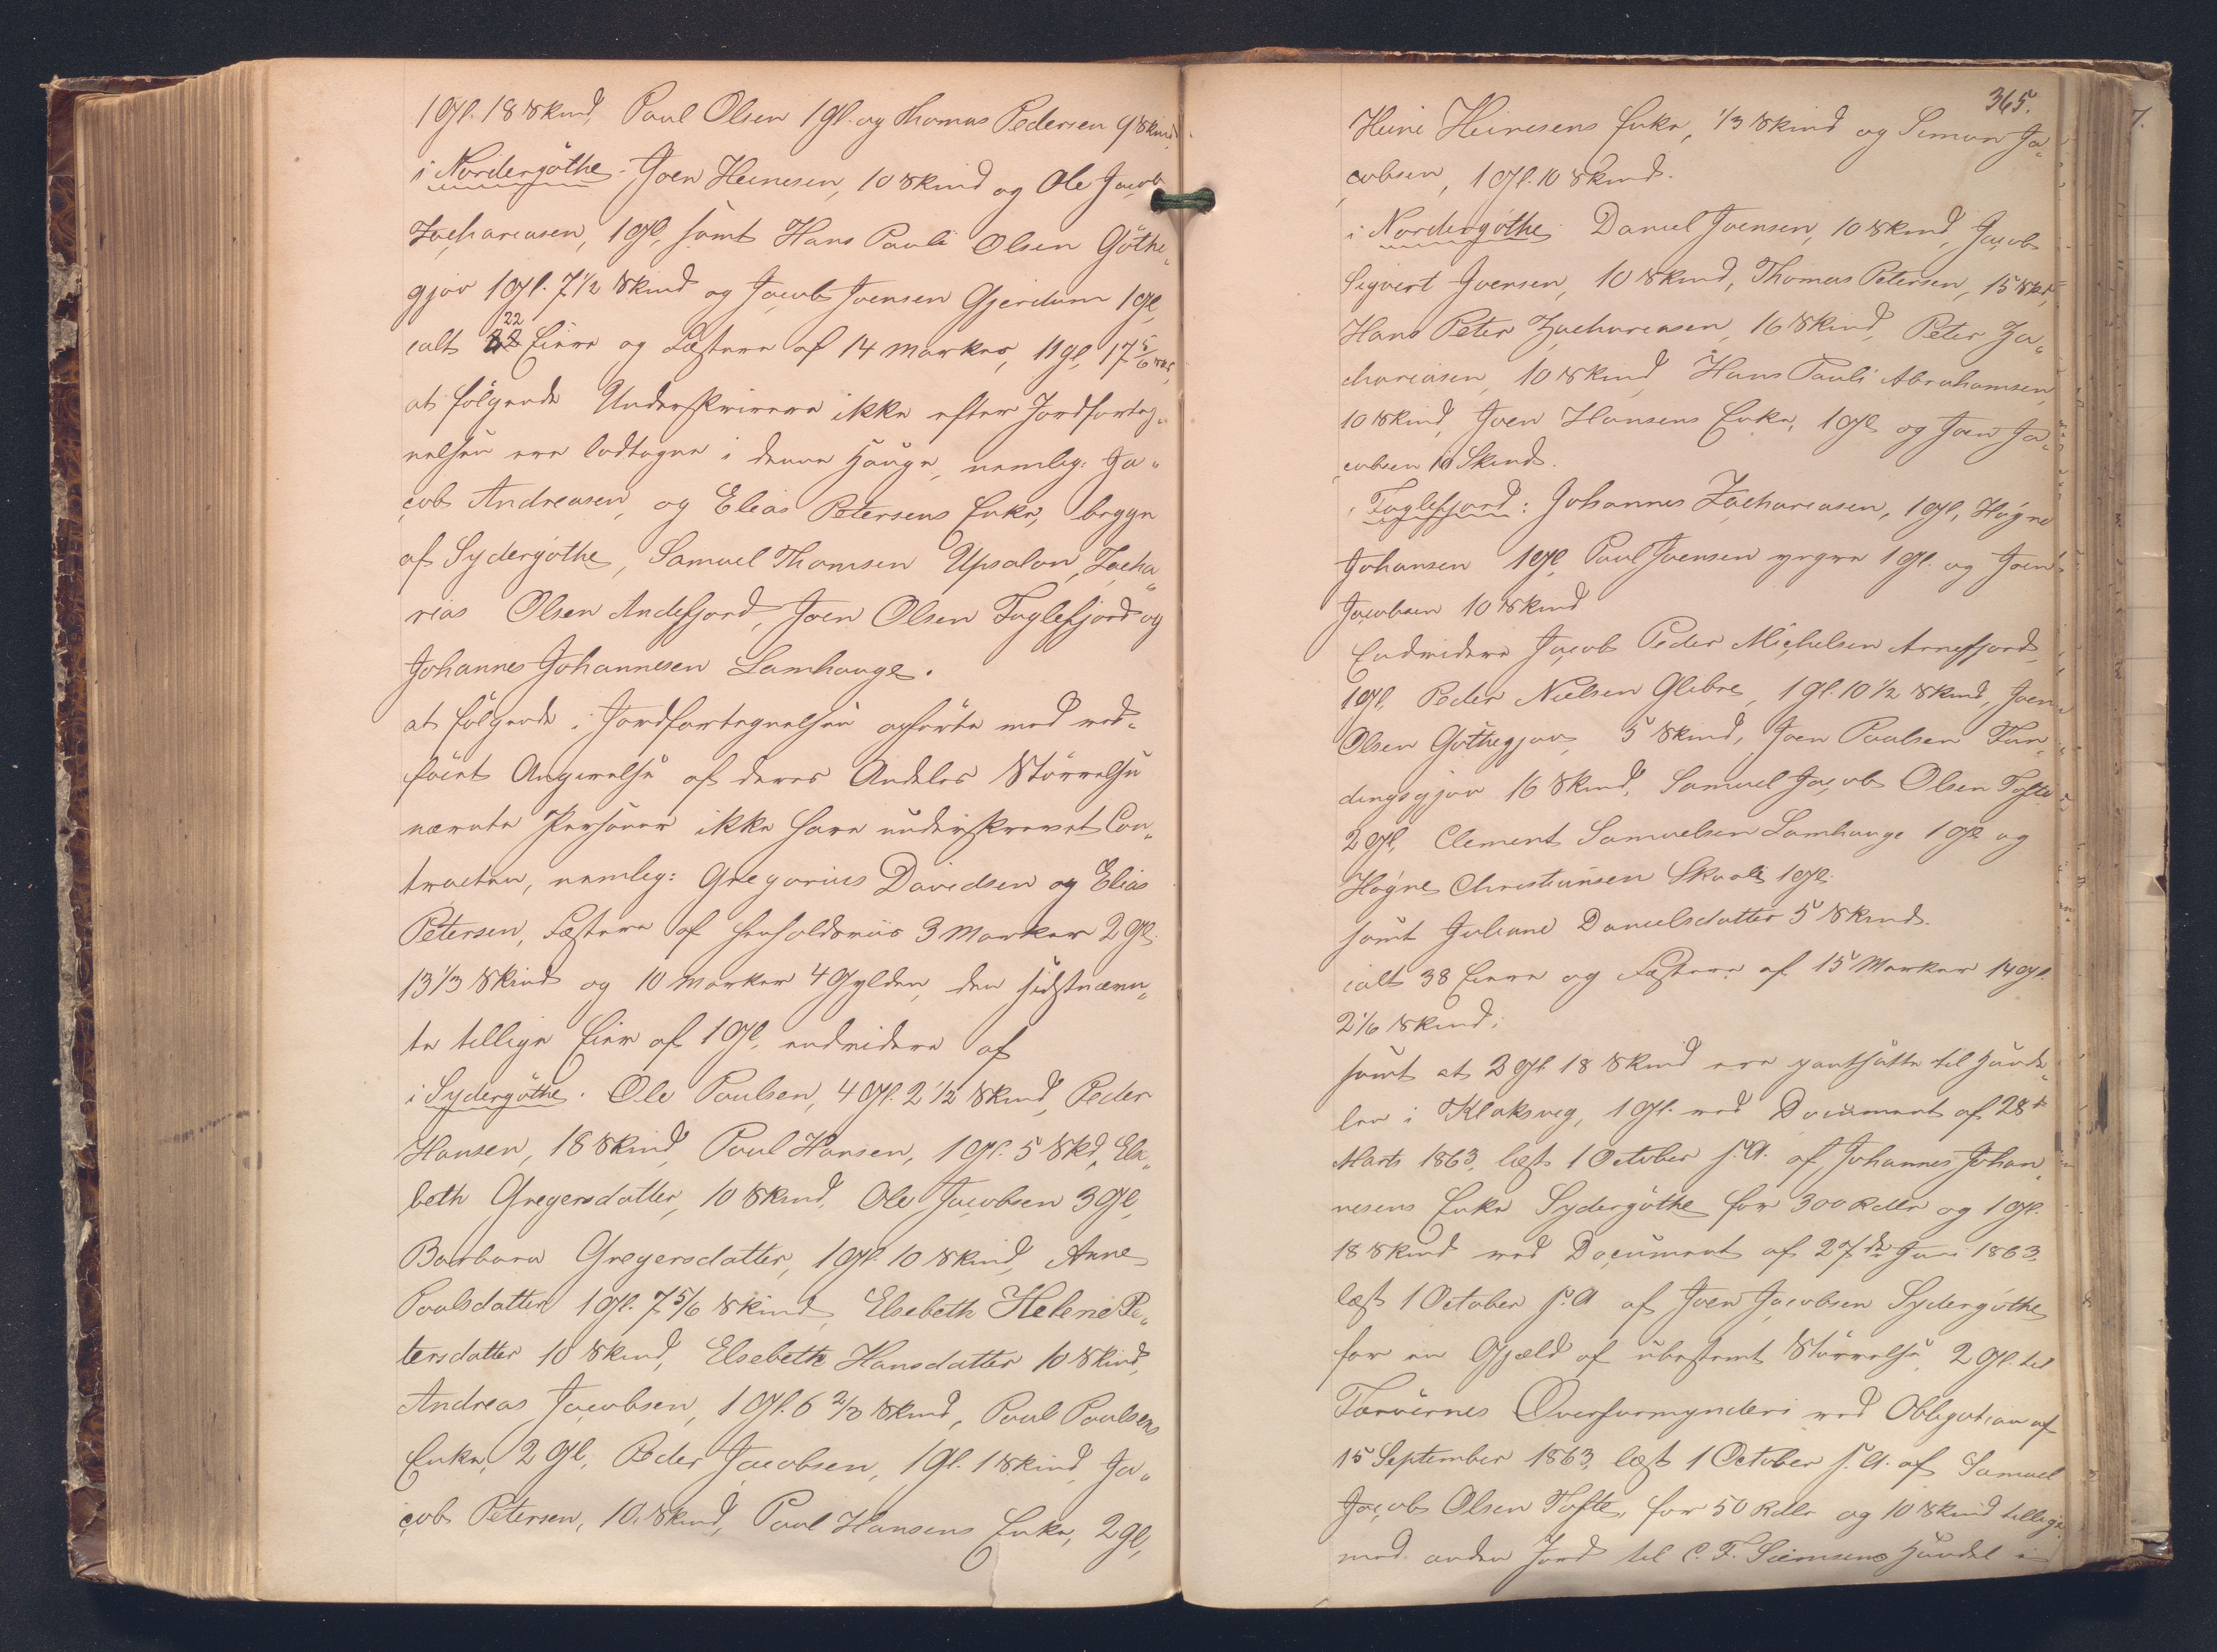 1 Gl. 18 Skind, Poul Olsen 1 Gl. og Thomas Pedersen 9 Skind,
i Nordergöthe: Joen Heinesen, 10 Skind og Ole Jacob
Zachariasen, 1 Gl, samt Hans Pauli Olsen Göthe„
gjov 1 Gl. 7 1/2 Skind og Jacob Joensen Gjerdum 1 Gl,
ialt 22 Eiere og Fæstere af 14 Marker, 11 Gl, 17 5/6 Skd,
at følgende Underskrivere ikke efter Jordforteg„
nelsen ere lodtagne i denne Hauge, nemlig: Ja„
cob Andreasen, og Elias Petersens Enke, begge
af Sydergöthe, Samuel Thomsen Upsalon, Zacha„
rias Olsen Andefjord, Joen Olsen Fuglefjord og
Johannes Johannesen Lamhauge.
at følgende i Jordfortegnelsen opførte med ved„
føiet Angivelse af deres Andeles Størrelse
nævnte Personer ikke have underskrevet Con„
tracten, nemlig: Gregorius Davidsen og Elias
Petersen, Fæstere af henholdsviis 3 Marker 2 Gl.
13 1/3 Skind og 10 Marker 4 Gylden, den sidstnævn„
te tillige Eier af 1 Gl, endvidere af
i Sydergöthe: Ole Poulsen, 4 Gl. 2 1/2 Skind, Peder
Hansen, 18 Skind, Poul Hansen, 1 Gl. 5 Skd, Else„
beth Gregersdatter, 10 Skind, Ole Jacobsen 3 Gl,
Barbara Gregersdatter, 1 Gl. 10 Skind, Anne
Poulsdatter 1 Gl. 7 5/6 Skind, Elsebeth Helene Pe„
tersdatter 10 Skind, Elsebeth Hansdatter 10 Skind,
Andreas Jacobsen, 1 Gl. 6 2/3 Skind, Poul Poulsens
Enke, 2 Gl, Peder Jacobsen, 1 Gl. 1 Skind, Ja„
cob Petersen, 10 Skind, Poul Hansens Enke, 2 Gl,
365.
Heine Heinesens Enke, 1/3 Skind og Simon Ja„
cobsen, 1 Gl. 10 Skind.
i Nordergöthe: Daniel Joensen, 10 Skind, Jacob
Sigvert Joensen, 10 Skind, Thomas Petersen, 15 Skd,
Hans Peter Zachariasen, 16 Skind, Peter Za„
chariasen, 10 Skind, Hans Pauli Abrahamsen,
10 Skind, Joen Hansens Enke, 1 Gl. og Joen Ja„
cobsen 10 Skind.
i Fuglefjord: Johannes Zachariasen, 1 Gl, Høgne
Johansen 1 Gl, Poul Joensen yngre 1 Gl. og Joen
Jacobsen 10 Skind
Endvidere Jacob Peder Michelsen Arnefjord
1 Gl, Peder Nielsen Glibre, 1 Gl. 10 1/2 Skind, Joen
Olsen Gøthegjov, 5 Skind, Joen Poulsen Fun„
dingsgjov 16 Skind, Samuel Jacob Olsen Tofte
2 Gl, Clement Samuelsen Lamhauge 1 Gl. og
Høgne Christiansen Skaale 1 Gl.
samt Juliane Danielsdatter 5 Skind.
ialt 38 Eiere og Fæstere af 15 Marker 14 Gl.
2 1/6 Skind;
samt at 2 Gl 18 Skind ere pantsatte til Hande„
len i Klaksvig, 1 Gl. ved Document af 28de
Marts 1863, læst 1 October s. A. af Johannes Johan„
nesens Enke Sydergöthe for 300 Rdlr og 1 Gl.
18 Skind ved Document af 27de Juni 1863,
læst 1 October s. A af Joen Jacobsen Sydergöthe
for en Gjæld af ubestemt Størrelse, 2 Gl. til
Færøernes Overformynderi ved Obligation af
15 September 1863, læst 1 October s. A. af Samuel
Jacob Olsen Tofte, for 50 Rdlr og 10 Skind tillige
med anden Jord til C. F. Siemsens Handel i